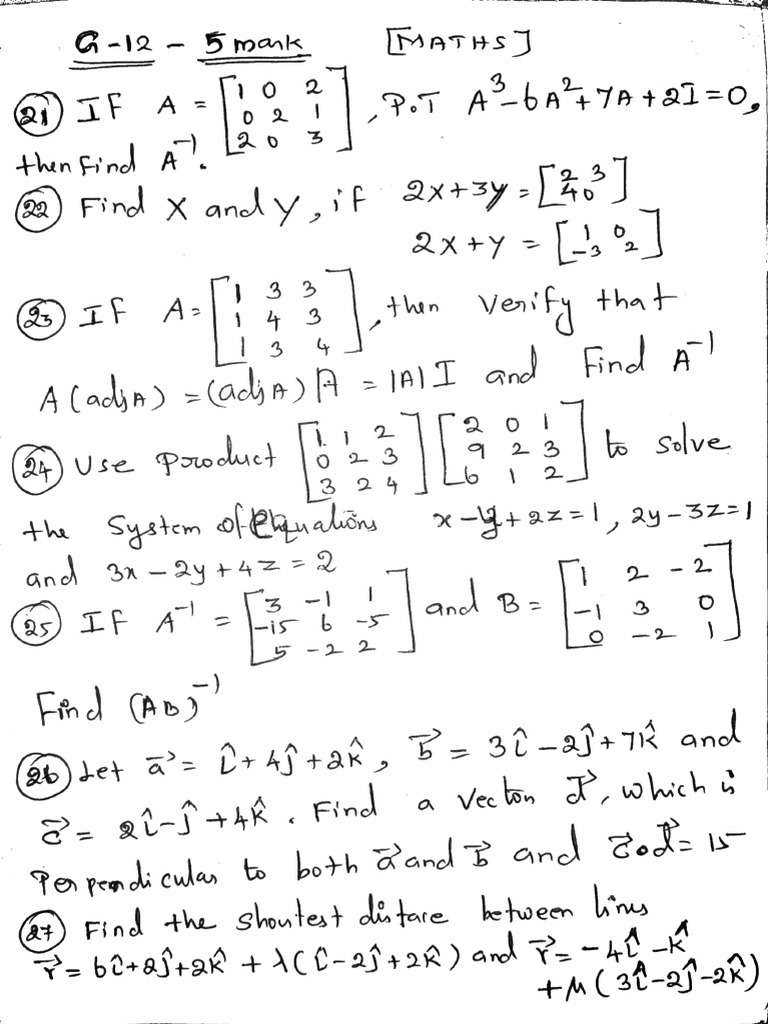 G-12 - 5 mark [MATHS]
21) If A = [1 0 2; 0 2 1; 2 0 3], P.T A³-6A²+7A+2I=0,
then find A⁻¹.
22) Find X and Y, if 2x+3y = [2 3; 4 0]
2x+y = [1 0; -3 2]
23) If A = [1 3 3; 1 4 3; 1 3 4], then verify that
A(adjA) = (adjA)A = |A|I and find A⁻¹
24) Use product [1 1 2; 0 2 3; 3 2 4] [2 0 1; 9 2 3; 6 1 2] to solve
the system of equations x-y+2z=1, 2y-3z=1
and 3x-2y+4z=2
25) If A⁻¹ = [3 -1 1; -15 6 -5; 5 -2 2] and B = [1 2 -2; -1 3 0; 0 -2 1]
Find (AB)⁻¹
26) Let a⃗ = î+4ĵ+2k̂, b⃗ = 3î-2ĵ+7k̂ and
c⃗ = 2î-ĵ+4k̂. Find a vector d⃗, which is
perpendicular to both a⃗ and b⃗ and c⃗∘d⃗=15
27) Find the shortest distace between lines
r⃗ = 6î+2ĵ+2k̂ + λ(î-2ĵ+2k̂) and r⃗ = -4î-k̂
+μ(3î-2ĵ-2k̂)